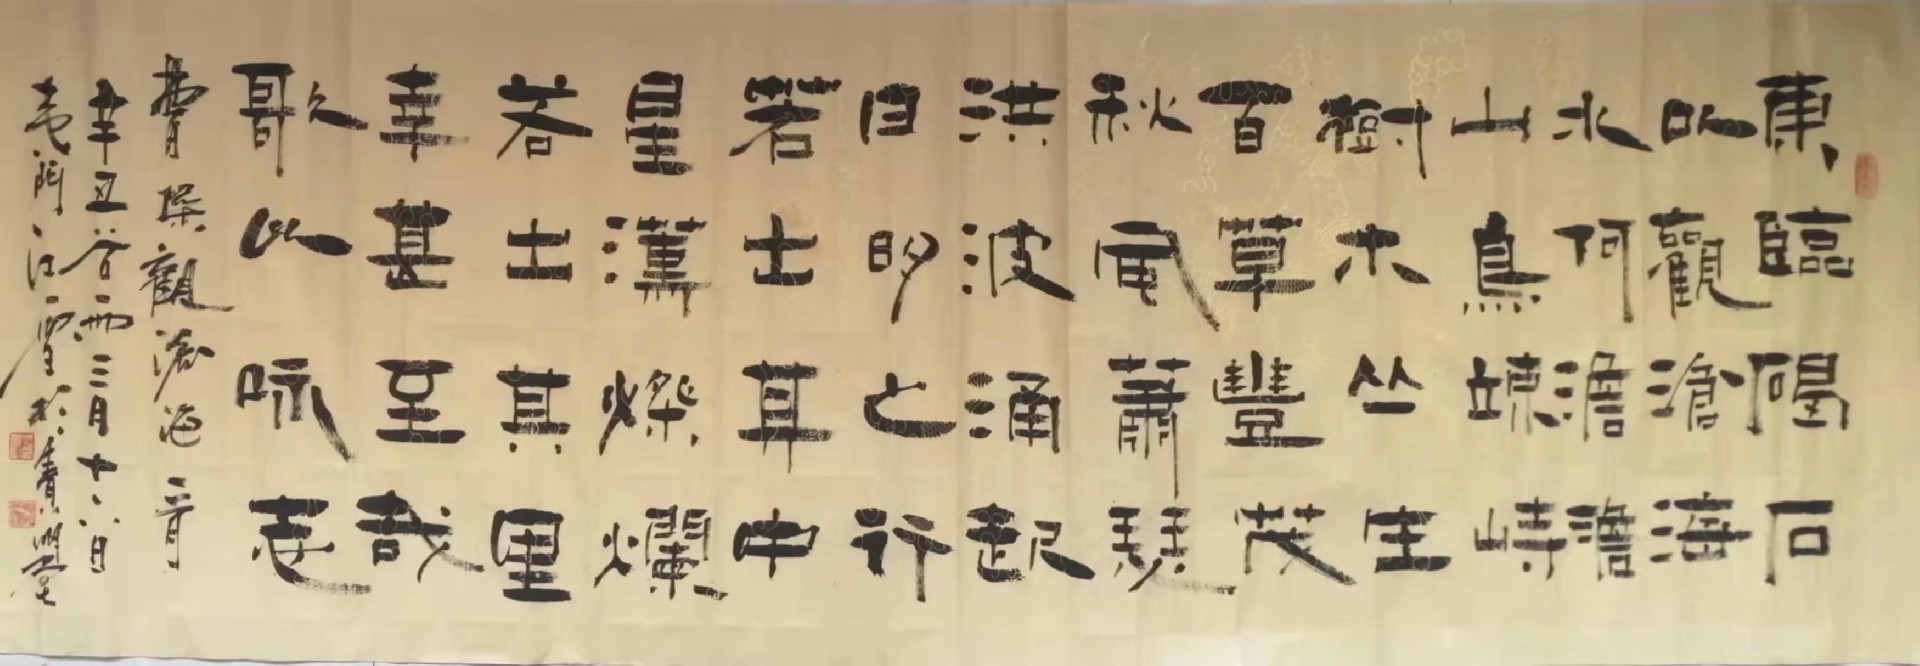 東臨碣石
以觀滄海
水何澹澹
山島竦峙
樹木丛生
百草豐茂
秋風蕭瑟
洪波涌起
日明之行
若出其中
星漢燦爛
若出其里
幸甚至哉
歌以咏志
曹操觀滄海一首
辛丑谷雨三月十八日
門江雪於青